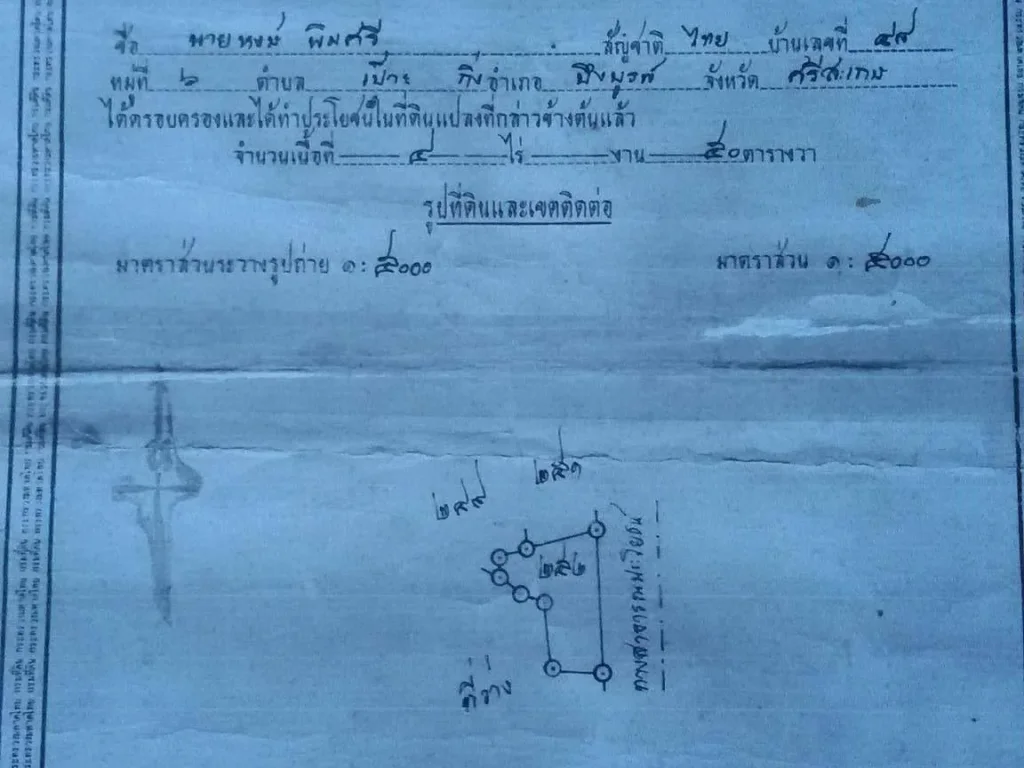 ชื่อ นายหงษ์ พิมศรี สัญชาติ ไทย บ้านเลขที่
หมู่ที่ ๖ ตำบล เป๊าะ กิ่งอำเภอ บึงบูรพ์ จังหวัด ศรีสะเกษ
ได้ครอบครองและได้ทำประโยชน์ในที่ดินแปลงที่กล่าวข้างต้นแล้ว
จำนวนเนื้อที่ ๔ ไร่ งาน ๕๐ ตารางวา
รูปที่ดินและเขตติดต่อ
มาตราส่วนระวางรูปถ่าย ๑ : ๕๐๐๐ มาตราส่วน ๑ : ๕๐๐๐
๒๕๑
๒๕๒
ทางสาธารณประโยชน์
ที่ว่าง